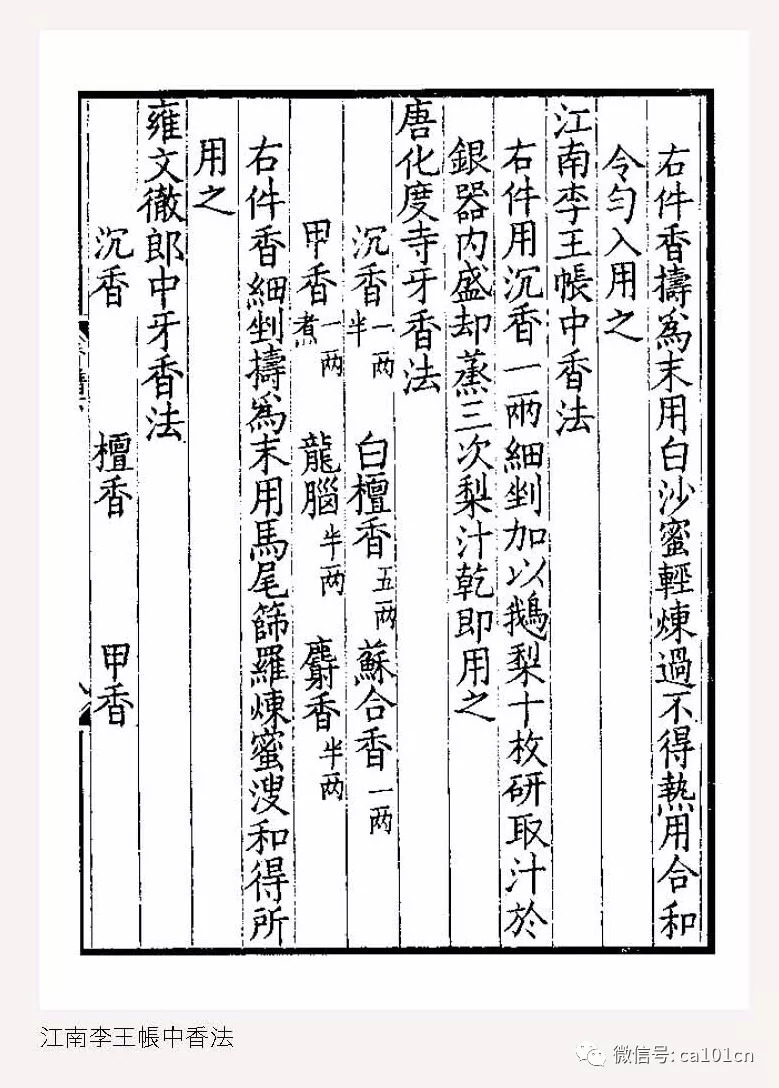 右件香擣爲末用白沙蜜輕煉過不得熱用合和
令勻入用之
江南李王帳中香法
右件用沉香一兩細剉加以鵝梨十枚研取汁於
銀器内盛却蒸三次梨汁乾即用之
唐化度寺牙香法
沉香一两半 白檀香五两 蘇合香一两
甲香一两煮 龍腦半两 麝香半两
右件香細剉擣爲末用馬尾篩羅煉蜜溲和得所
用之
雍文徹郎中牙香法
沉香 檀香 甲香
江南李王帳中香法
微信号: ca101cn